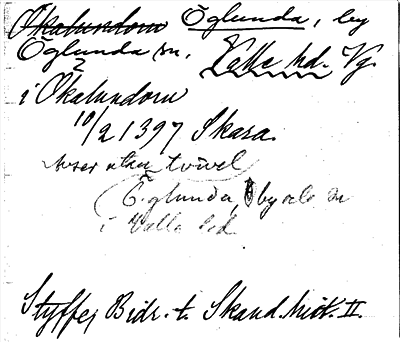 Okalundom Öglunda, by
Öglunda sn, Valle hd. Vg.
i Okalundom
10/2 1397 Skara.
avser utan tvivel
Öglunda, by och sn
i Valle hd
Styffe, Bidr. t. Skand. hist. II.